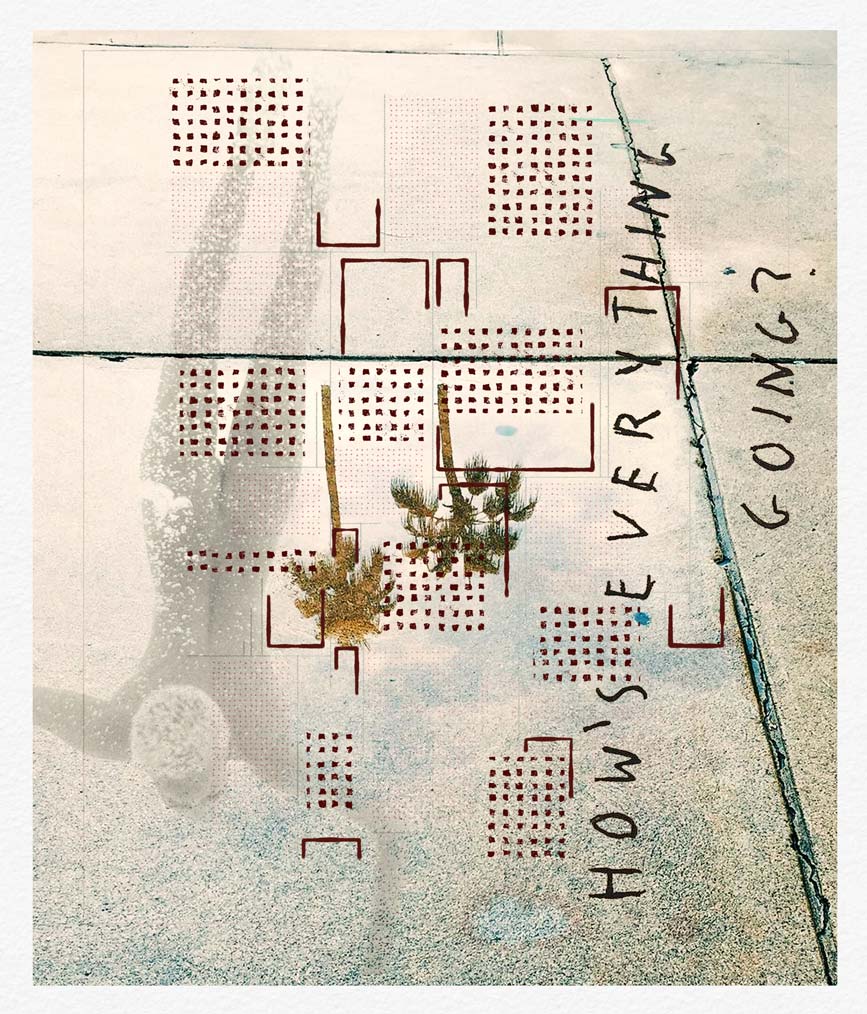 HOW'S EVERYTHING
GOING?